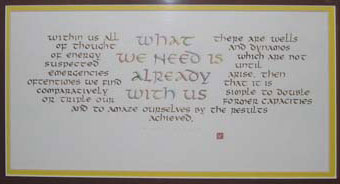 what
we need is
already
with us
within us all there are wells
of thought and dynamos
of energy which are not
suspected until
emergencies arise. then
oftentimes we find that it is
comparatively simple to double
or triple our former capacities
and to amaze ourselves by the results
achieved.